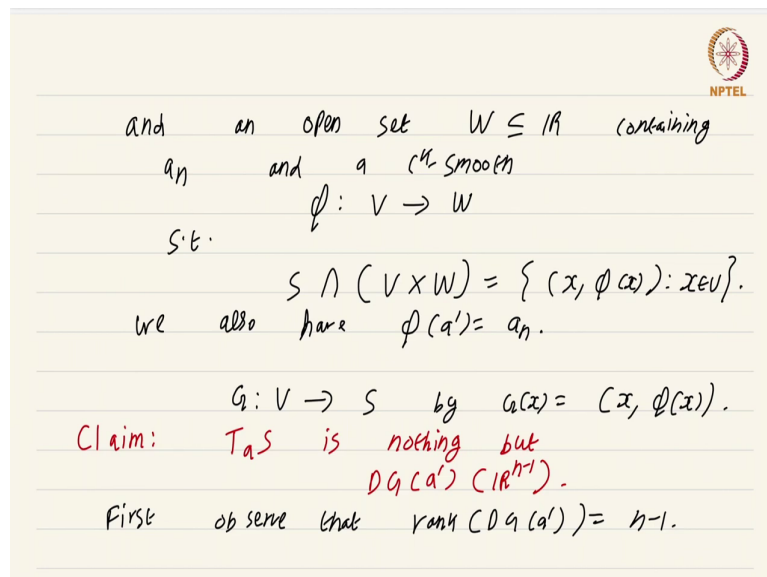 NPTEL
and an open set W ⊆ ℝ containing
aₙ and a Cᵏ-smooth
φ : V → W
s.t.
S ∩ (V × W) = { (x, φ(x)) : x ∈ V }.
we also have φ(a') = aₙ.
G : V → S by G(x) = (x, φ(x)).
Claim: TₐS is nothing but
DG(a') (ℝⁿ⁻¹).
First observe that rank (DG(a')) = n-1.